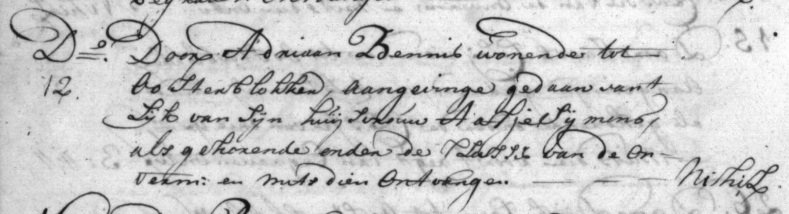 D.º Door Adriaan Bennis wonende tot
12. Oosterblokker, aangevinge gedaan van't
Lijk van Sijn huijsvrouw Aafje Sijmens,
als gehorende onder de Classis van de on-
verm: en mits dien ontvangen — — — Nihil.